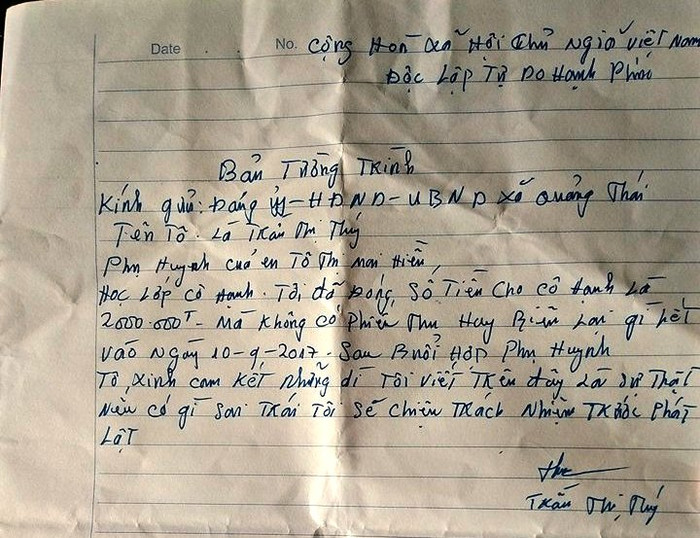 Date . . No. Cộng Hoà xã Hội Chủ Nghĩa việt Nam
Độc Lập Tự Do Hạnh Phúc
Bản Tường Trình
Kính gửi: Đảng ủy - HĐND - UBND xã Quảng Thái
Tên Tô. Là Trần Thị Thuý
Phụ Huynh của em Tô Thị Mai Hiền,
Học Lớp cô Hạnh. Tôi đã Đóng Số Tiền Cho cô Hạnh Là
2000.000T - mà không có Phiếu Thu Hay Biên Lai gì hết
vào Ngày 10-9-2017. Sau Buổi Họp Phụ Huynh
Tô, xinh cam kết những dì Tôi viết Trên đây Là Sự Thật
nếu có gì San Trái Tôi Sẽ chiệu Trách Nhiệm Trước Phát
Lật
Trần Thị Thuý